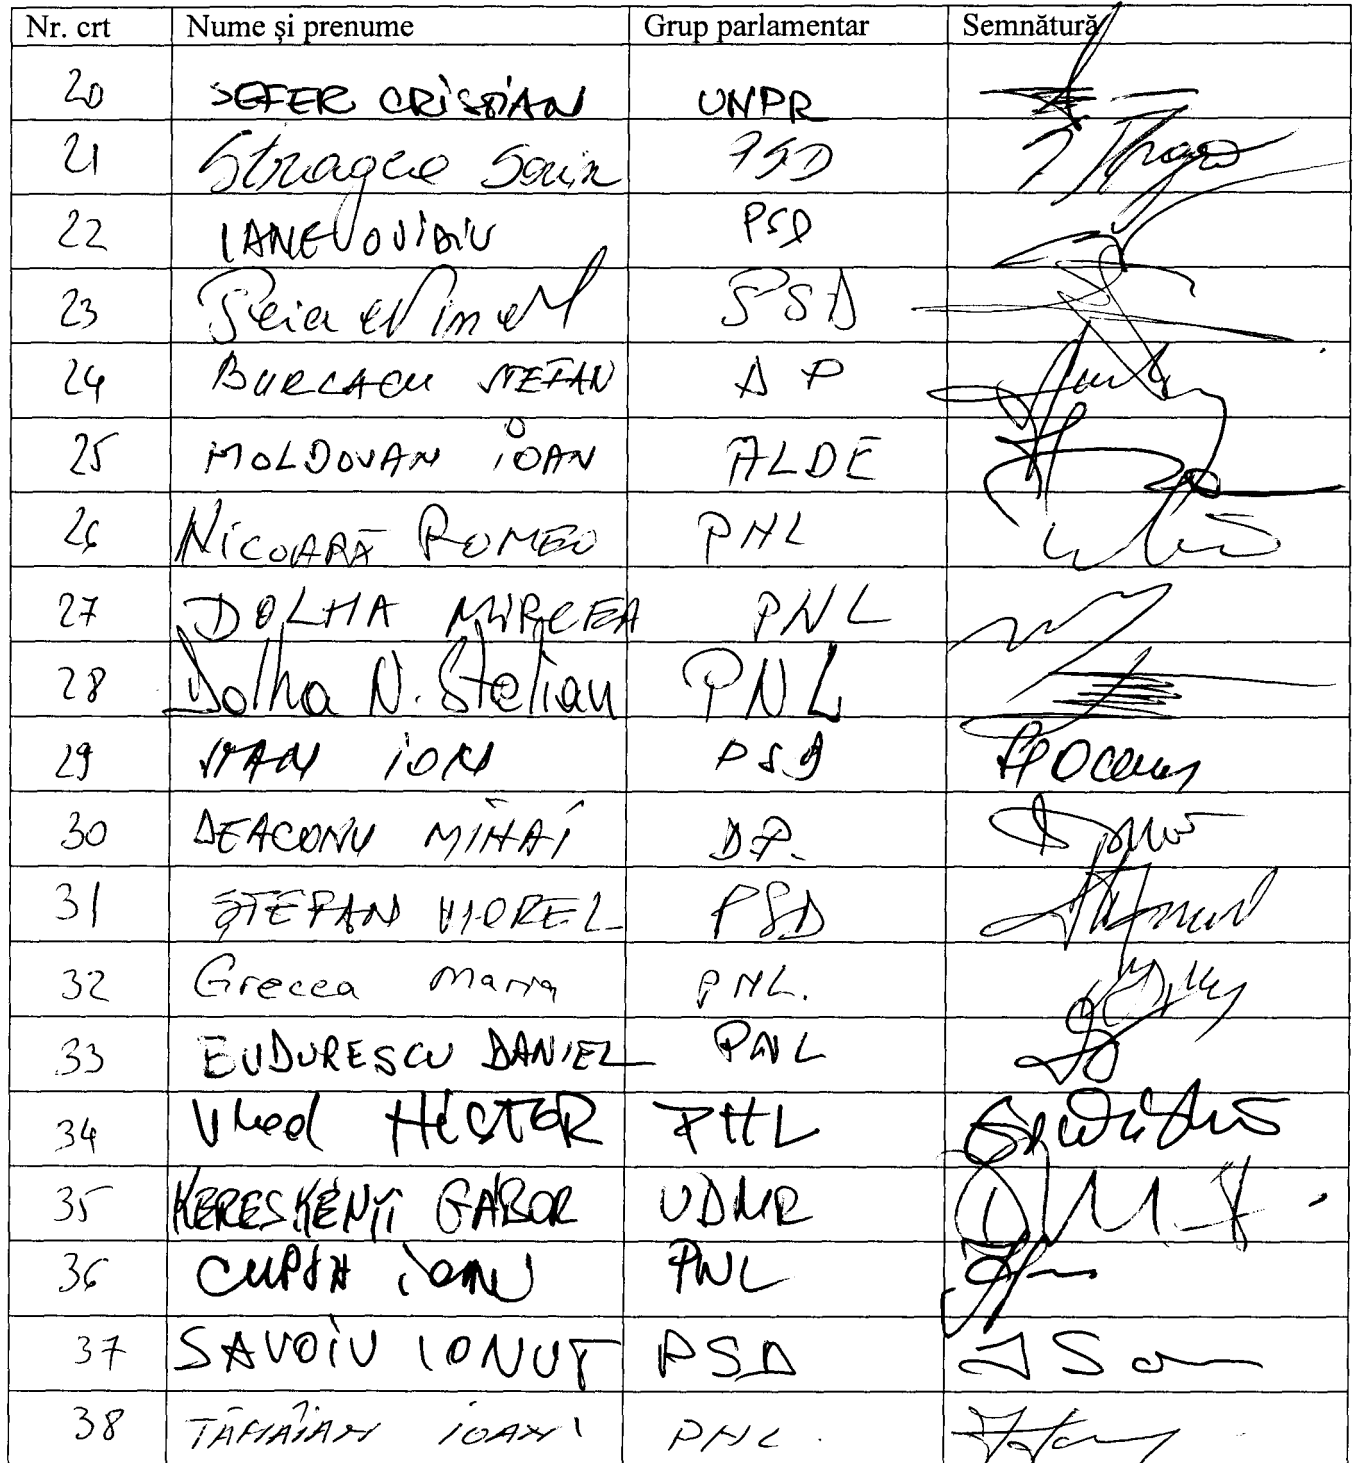 Nr. crt Nume și prenume Grup parlamentar Semnătură
20 SEFER CRISTIAN UNPR
21 Stragea Sorin PSD
22 IANE OVIDIU PSD
23 Peia Ninel PSD
24 BURCACU STEFAN DP
25 MOLDOVAN IOAN ALDE
26 NICOARĂ ROMEO PNL
27 DOLHA MIRCEA PNL
28 Dolha N. Stelian PNL
29 STAN ION PSD
30 DEACONU MIHAI DP.
31 ȘTEFAN VIOREL PSD
32 Grecea Maria PNL.
33 BUDURESCU DANIEL PNL
34 Vlad NISTOR PNL
35 KERESKÉNYI GÁBOR UDMR
36 CUPȘA IOAN PNL
37 SAVOIU IONUȚ PSD
38 TĂMÂIAN IOAN PNL.